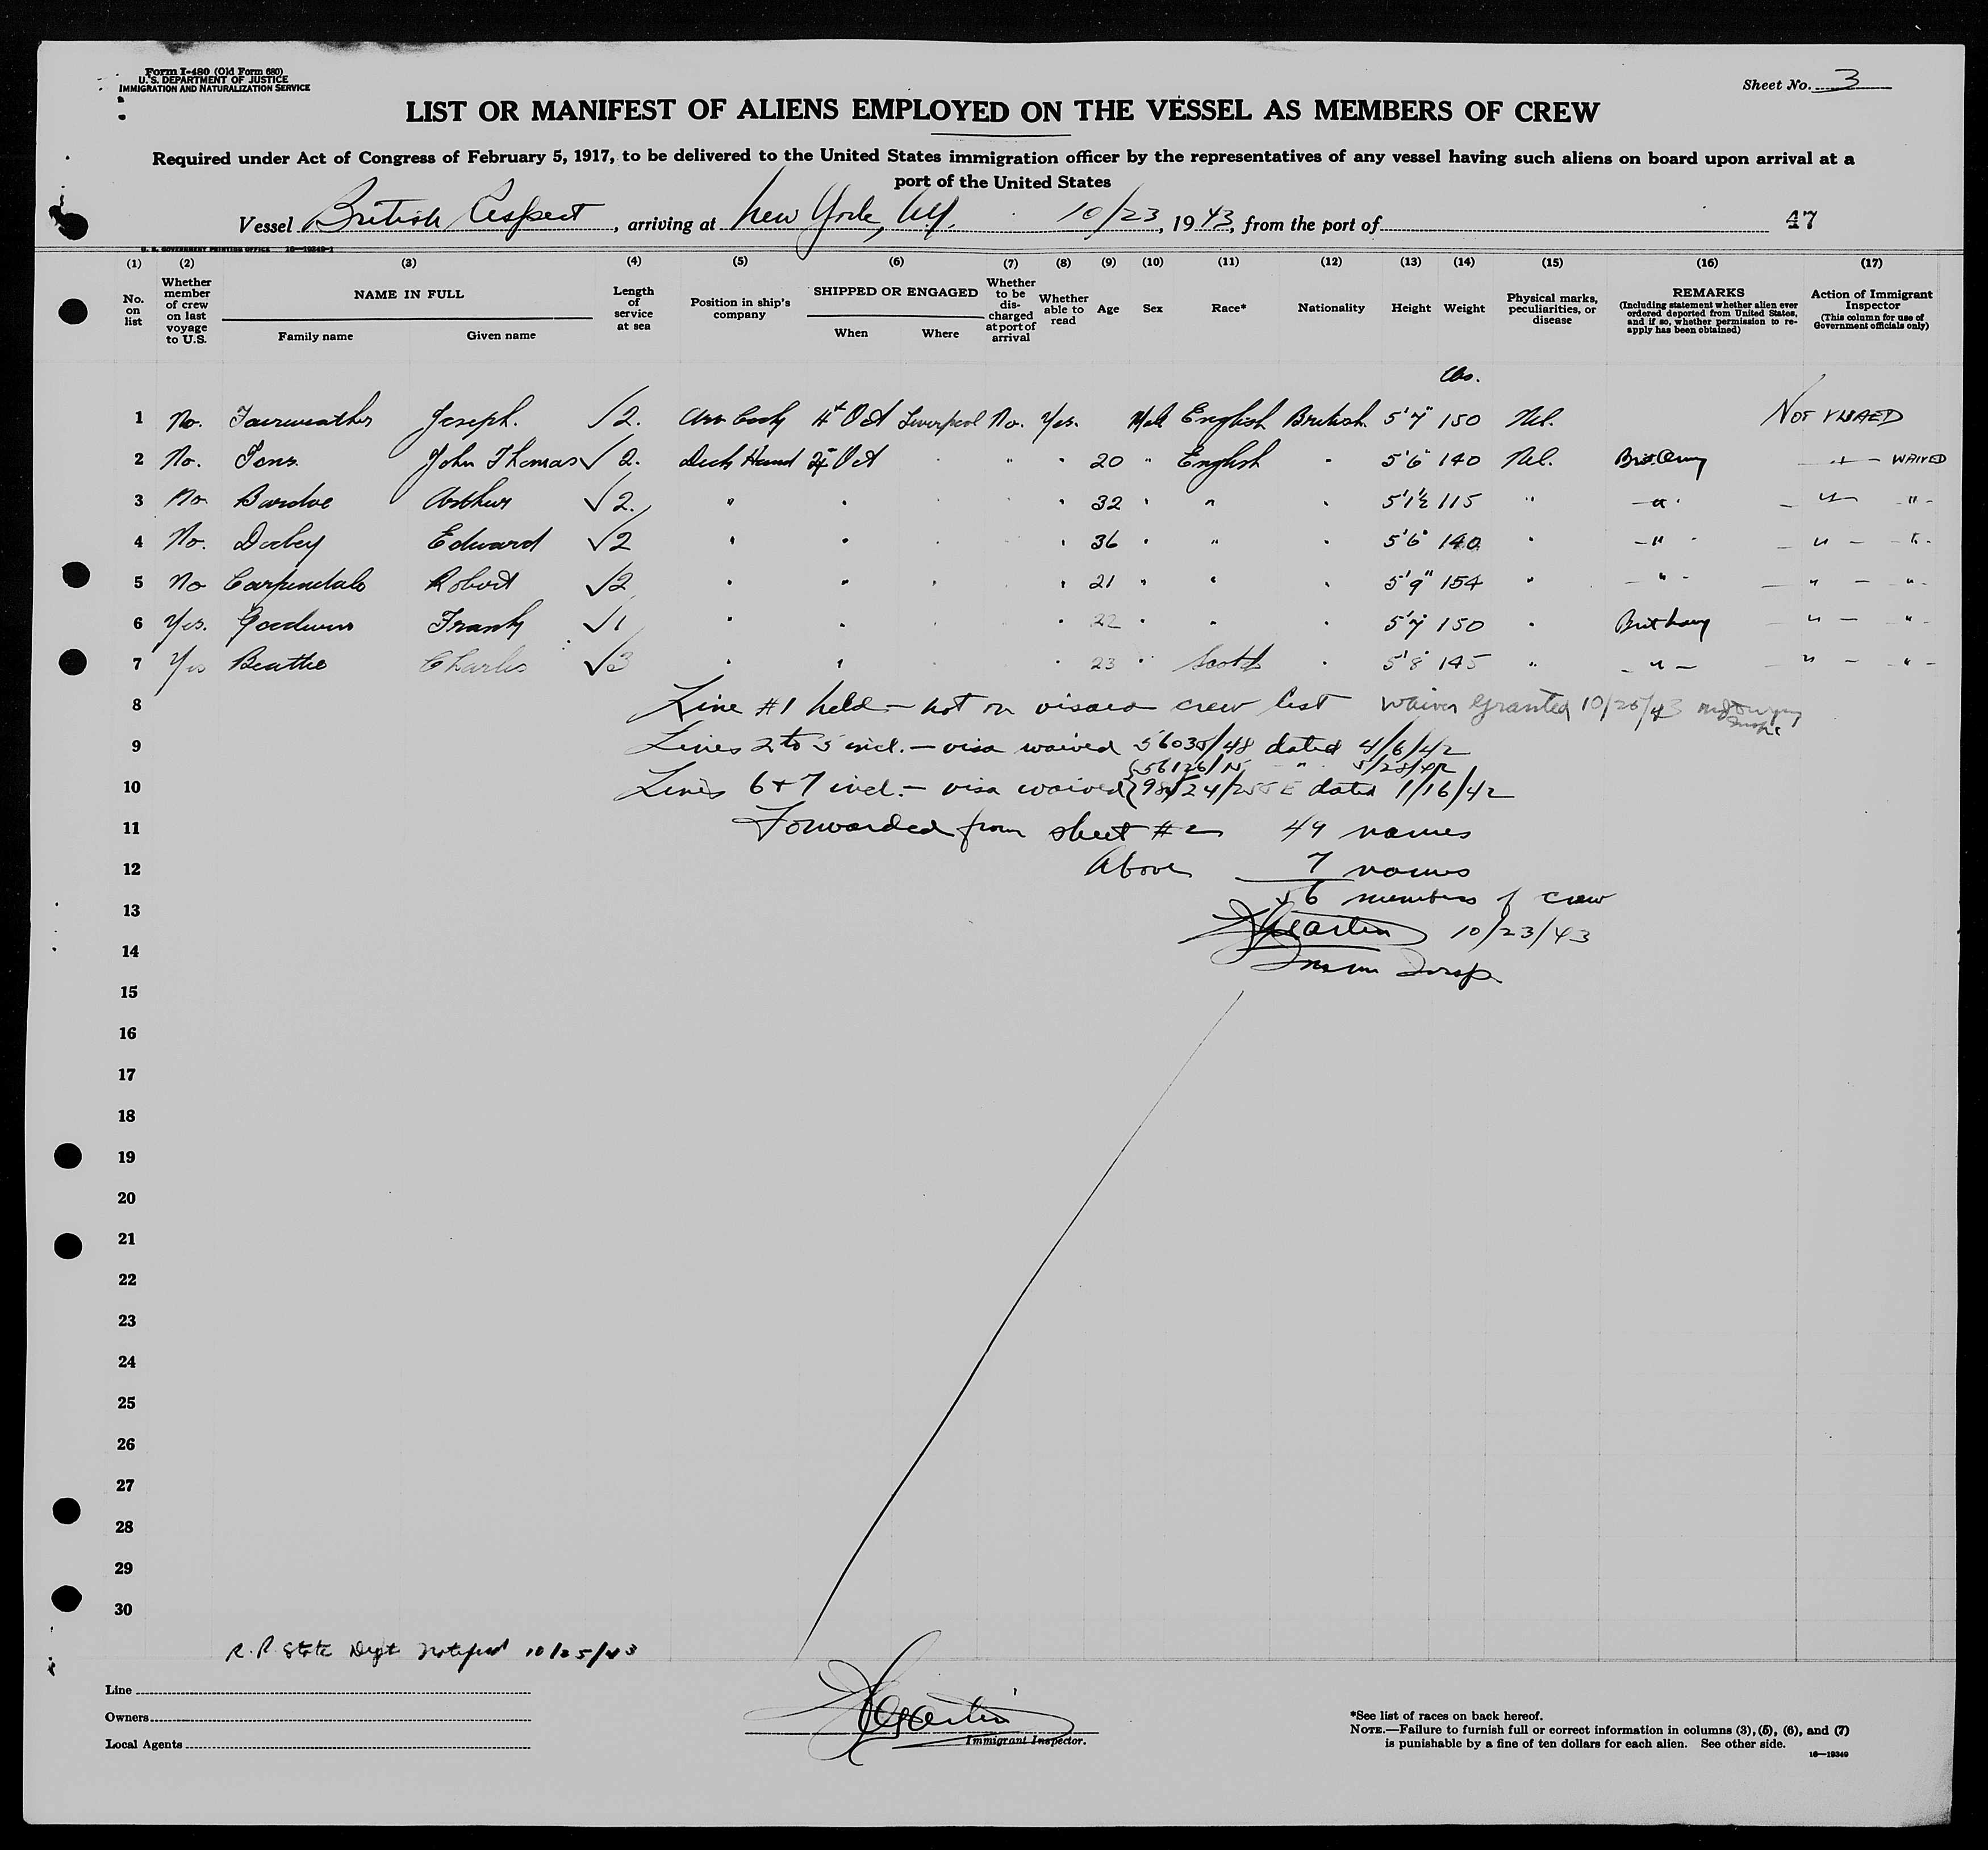 Form I-480 (Old Form 680)
U. S. DEPARTMENT OF JUSTICE
IMMIGRATION AND NATURALIZATION SERVICE
Sheet No. 3
LIST OR MANIFEST OF ALIENS EMPLOYED ON THE VESSEL AS MEMBERS OF CREW
Required under Act of Congress of February 5, 1917, to be delivered to the United States immigration officer by the representatives of any vessel having such aliens on board upon arrival at a
port of the United States
Vessel British Respect, arriving at New York, NY. 10/23, 1943, from the port of 47
U. S. GOVERNMENT PRINTING OFFICE 16—19349-1
(1) (2) (3) (4) (5) (6) (7) (8) (9) (10) (11) (12) (13) (14) (15) (16) (17)
No. on list
Whether member of crew on last voyage to U.S.
NAME IN FULL
Family name Given name
Length of service at sea
Position in ship's company
SHIPPED OR ENGAGED
When Where
Whether to be discharged at port of arrival
Whether able to read
Age
Sex
Race*
Nationality
Height
Weight
Physical marks, peculiarities, or disease
REMARKS
(Including statement whether alien ever ordered deported from United States, and if so, whether permission to re-apply has been obtained)
Action of Immigrant Inspector
(This column for use of Government officials only)
lbs.
1 No. Fairweather Joseph. √2. Cook 4th Oct Liverpool No. Yes. Male English British 5'7" 150 Nil. NOT VISAED
2 No. John Thomas √2. Deck Hand Oct " " 20 " English " 5'6" 140 Nil. Brit. Army " WAIVED
3 No Bardoe Arthur √2. " " " " 32 " " " 5'1½ 115 " " " "
4 No. Edward √2 " " " " 36 " " " 5'6" 140 " " " "
5 No Carpendale Robert √2 " " " " 21 " " " 5'9" 154 " " " "
6 Yes. Goodwin Frank √1 " " " " 22 " " " 5'7" 150 " Brit Army " "
7 Yes Beattie Charles √3 " " " " 23 " Scotch " 5'8" 145 " " " "
8 Line #1 held - not on visaed crew list Waiver granted 10/25/43
9 Lines 2 to 5 incl. - visa waived 56035/48 dated 4/6/42
56126/ " 5/28/42
10 Lines 6 + 7 incl. - visa waived dated 1/16/42
11 Forwarded from sheet #2 49 names
12 Above 7 names
56 members of crew
13 Martin 10/23/43
14 Imm Insp
15
16
17
18
19
20
21
22
23
24
25
26
27
28
29
30
R.P. State Dept notified 10/25/43
Line
Owners
Local Agents
Martin
Immigrant Inspector.
*See list of races on back hereof.
NOTE.—Failure to furnish full or correct information in columns (3), (5), (6), and (7)
is punishable by a fine of ten dollars for each alien. See other side.
16—19349